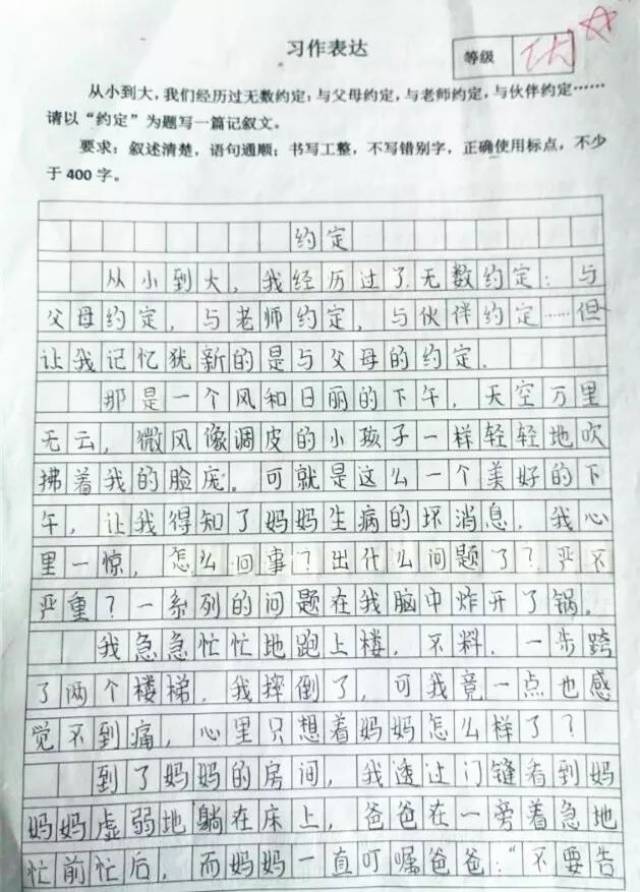 习作表达
等级 优
从小到大，我们经历过无数约定：与父母约定，与老师约定，与伙伴约定……
请以“约定”为题写一篇记叙文。
要求：叙述清楚，语句通顺；书写工整，不写错别字，正确使用标点，不少
于 400 字。
约定
从小到大，我经历过了无数约定：与
父母约定，与老师约定，与伙伴约定……但
让我记忆犹新的是与父母的约定。
那是一个风和日丽的下午，天空万里
无云，微风像调皮的小孩子一样轻轻地吹
拂着我的脸庞。可就是这么一个美好的下
午，让我得知了妈妈生病的坏消息，我心
里一惊，怎么回事？出什么问题了？严不
严重？一系列的问题在我脑中炸开了锅。
我急急忙忙地跑上楼，不料，一步跨
了两个楼梯，我摔倒了，可我竟一点也感
觉不到痛，心里只想着妈妈怎么样了？
到了妈妈的房间，我透过门缝看到妈
妈妈虚弱地躺在床上，爸爸在一旁着急地
忙前忙后，而妈妈一直叮嘱爸爸：“不要告